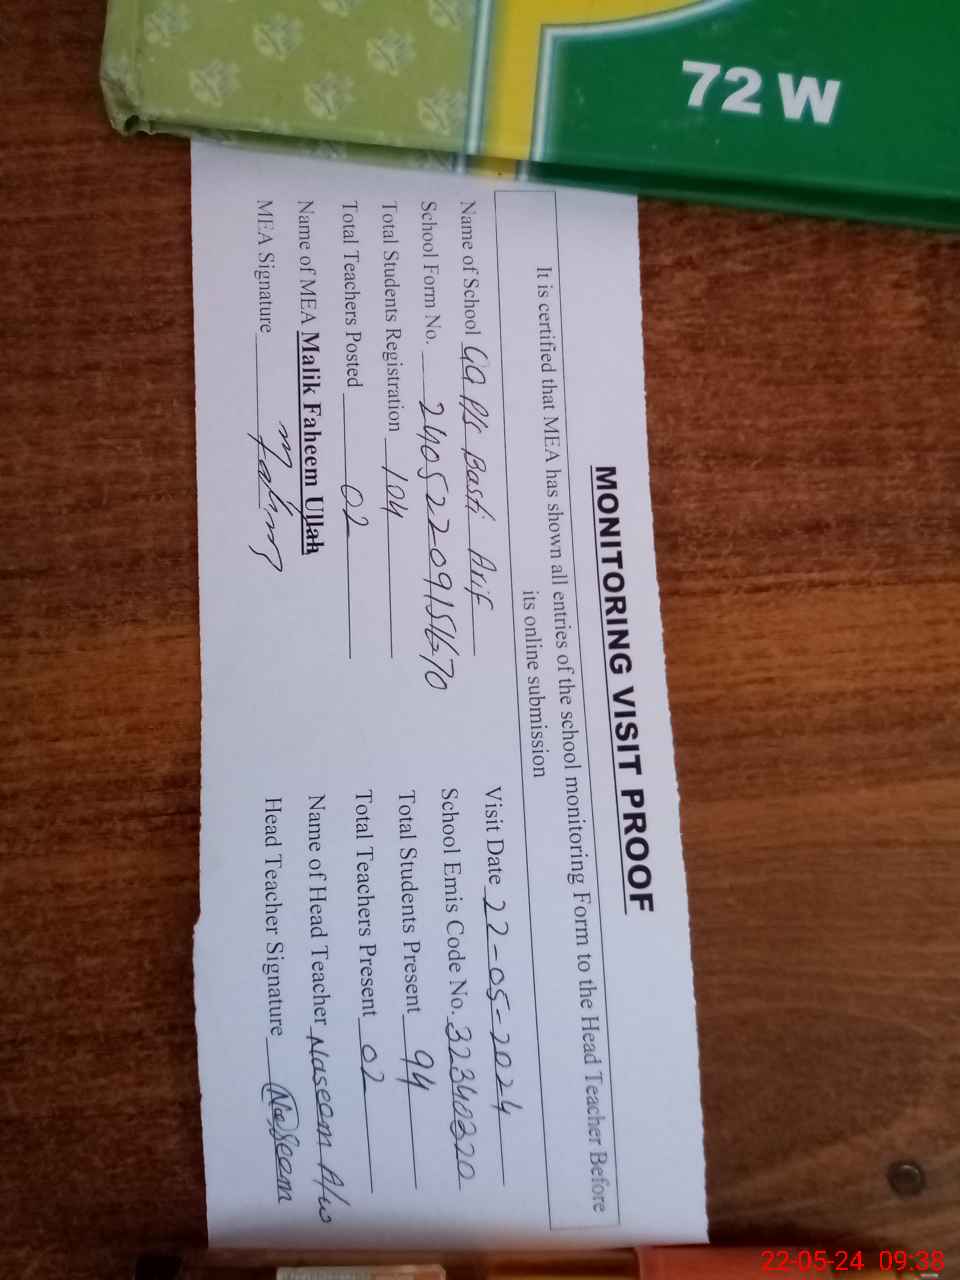 72 W
MONITORING VISIT PROOF
It is certified that MEA has shown all entries of the school monitoring Form to the Head Teacher Before
its online submission
Name of School GG P/S Basti Arif Visit Date 22-05-2024
School Form No. School Emis Code No. 32340320
Total Students Registration 104 Total Students Present 94
Total Teachers Posted 02 Total Teachers Present 02
Name of MEA Malik Faheem Ullah Name of Head Teacher Naseem A/w
MEA Signature Head Teacher Signature Naseem
22-05-24 09:38